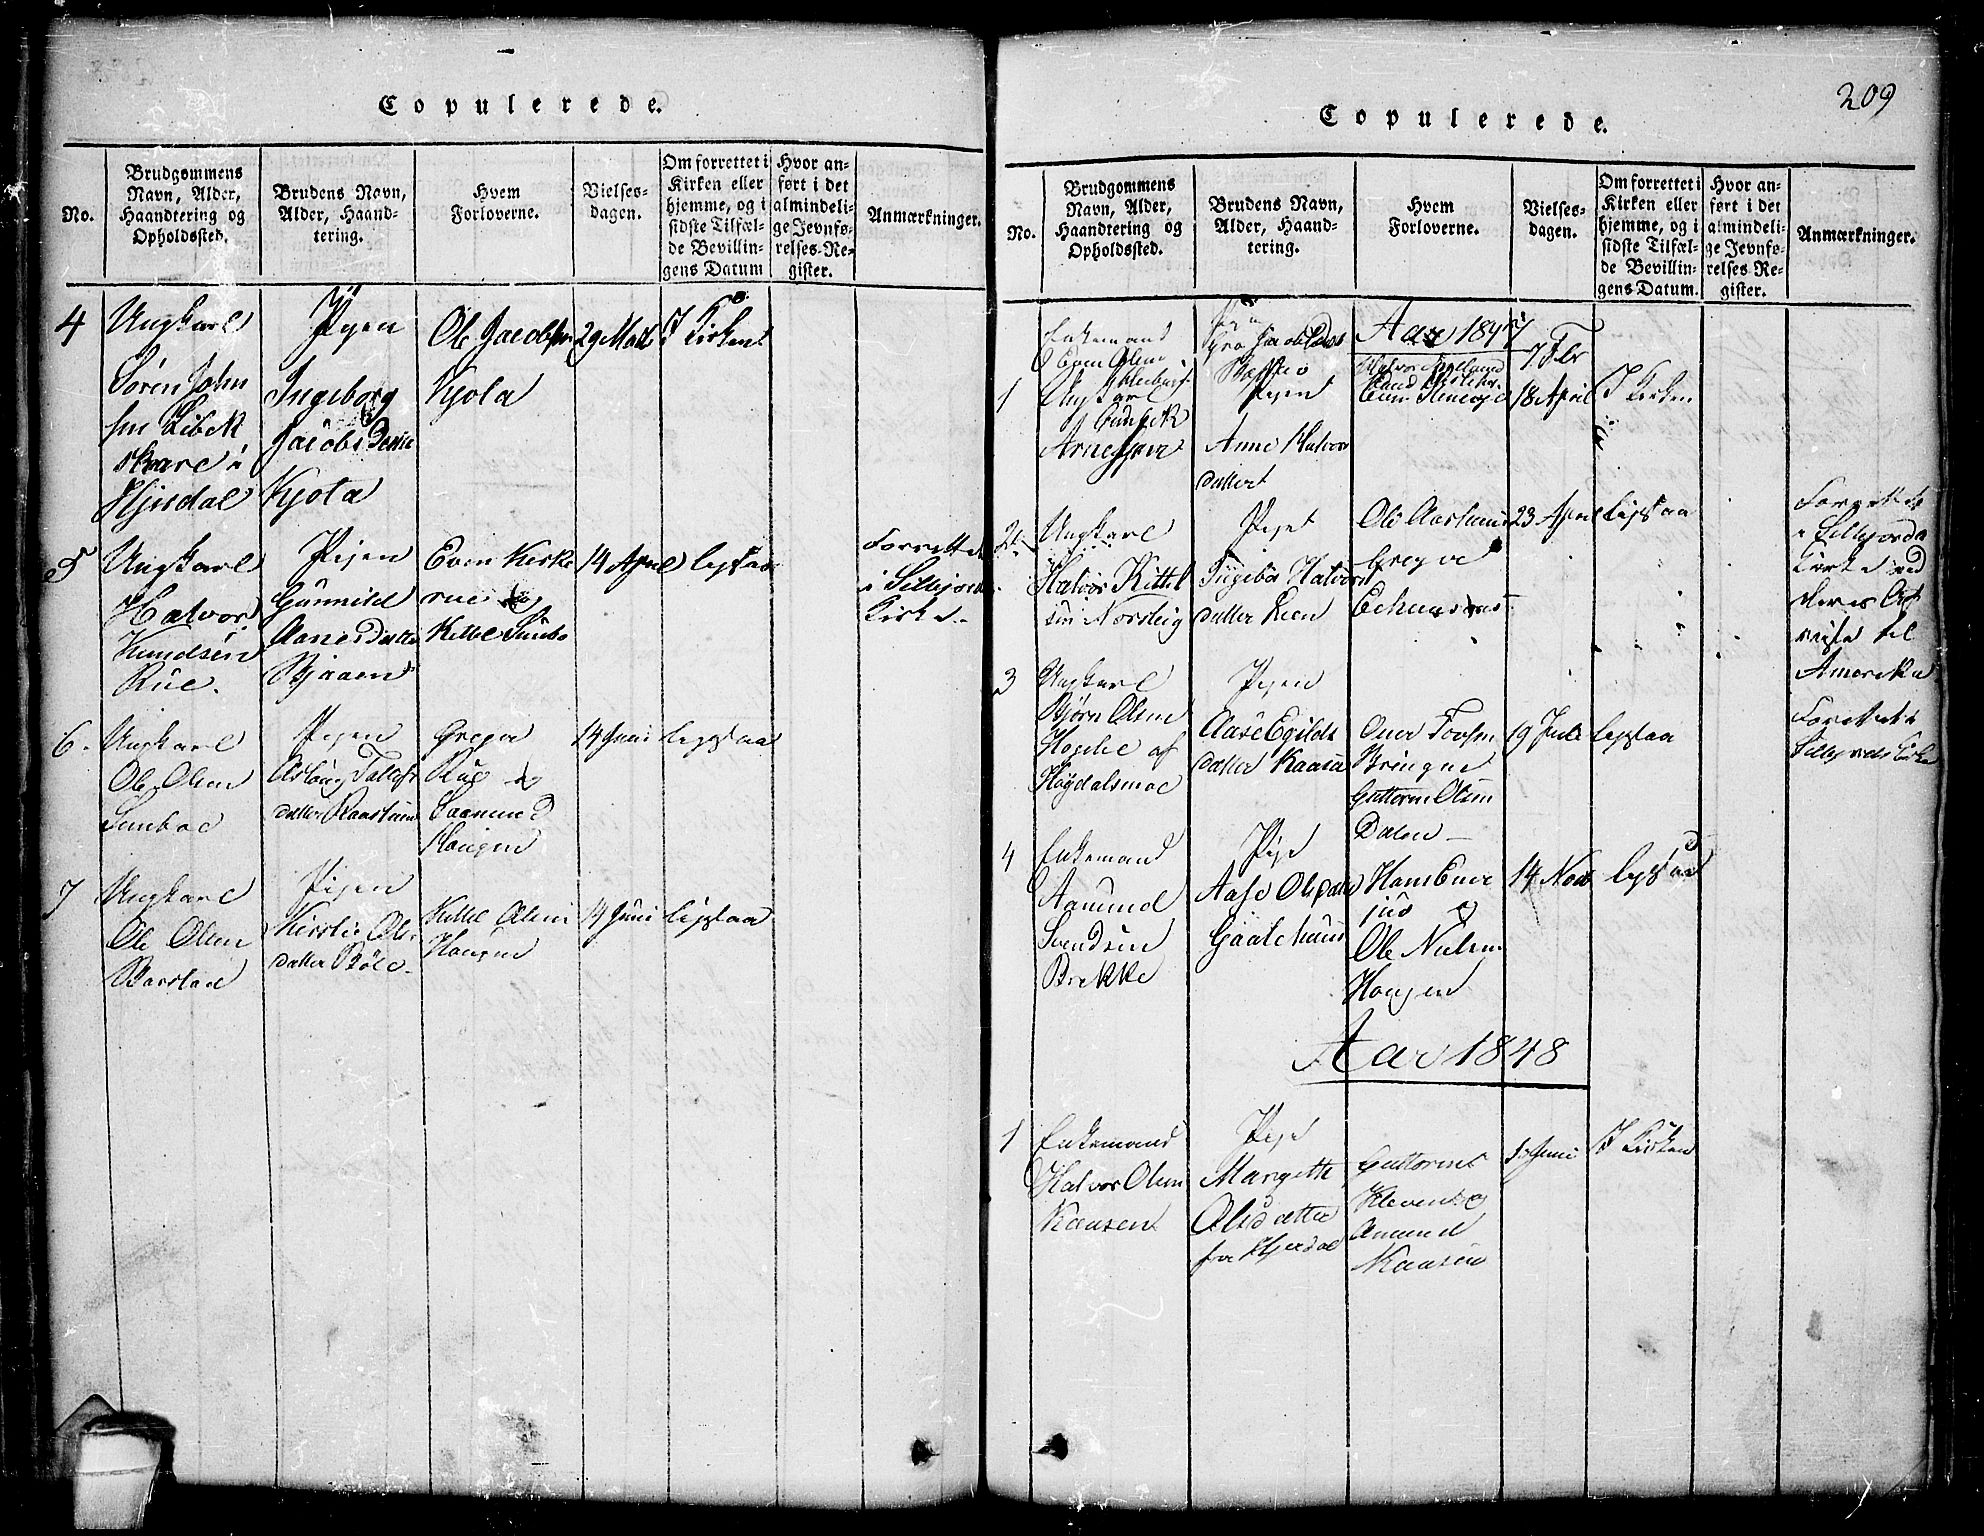 Copulerede.
No.
Brudgommens
Navn, Alder,
Haandtering og
Opholdssted.
Brudens Navn,
Alder, Haand-
tering.
Hvem
Forloverne.
Vielses-
dagen.
Om forrettet i
Kirken eller
hjemme, og i
sidste Tilfæl-
de Bevillin-
gens Datum
Hvor an-
ført i det
almindeli-
ge Jevnfø-
relses-Re-
gister.
Anmærkninger.
4
Ungkarl
Søren John
sen Libek
skare i
Hjerdal
Pigen
Ingeborg
Jacobs Datter
Kjota
Ole Jacobsen
Kjota
29 Mai
I Kirken
5
Ungkarl
Halvor
Knudsen
Rue.
Pigen
Gunnild
Aanes Datter
Bjaaen
Even Kirke
rue og
Kittel Sunbo
14 April
ligesaa
Forrettet
i Sillejords
Kirke.
6.
Ungkarl
Ole Olsen
Sunboe
Pigen
Aslaug Tallefs
datter Raastuen
Gregar
Rue og
Saamund
Haugen
14 Juni
ligesaa
7
Ungkarl
Ole Olsen
Barstad
Pigen
Kirstie Ols
datter Bøle.
Kittel Olsen
Haugen
14 Juni
ligesaa
209
Copulerede.
No.
Brudgommens
Navn, Alder,
Haandtering og
Opholdssted.
Brudens Navn,
Alder, Haand-
tering.
Hvem
Forloverne.
Vielses-
dagen.
Om forrettet i
Kirken eller
hjemme, og i
sidste Tilfæl-
de Bevillin-
gens Datum.
Hvor an-
ført i det
almindeli-
ge Jevnfø-
relses-Re-
gister.
Anmærkninger.
Aar 1847
Enkemand
Even Olsen
7. Fbr
1
Ungkarl
Arnesen
Pigen
Anne Halvor
datter
18 April
I Kirken
2
Ungkarl
Halvor Kittel
sen Norsteig
Pige
Ingebor Halvors
datter Leen
Ole Aashaun
Gregar
23 April
ligesaa
Forrettet
i Sillejords
Kirke ved
deres Af
reise til
Amerika
3
Ungkarl
Bjørn Olsen
af
Høgdalsmoe
Pigen
Aase Egilds
datter Kaasa
Tovsen
Bringne
Guttorm Olsen
Dalen
19 Juli
ligesaa
Forrettet i
Sillejords Kirke
4
Enkemand
Aamund
Svendsen
Brekke
Pige
Aase Olsdatter
Gaatehaus
Hans Ener
jus og
Ole Nielsen
Haugen
14 Nov
ligesaa
Aar 1848
1
Enkemand
Halvor Olsen
Kaasen
Pige
Margethe
Olsdatter
fra Hjerdal
Guttorm
Kleven og
Amund
Kaasen
Juni
I Kirken